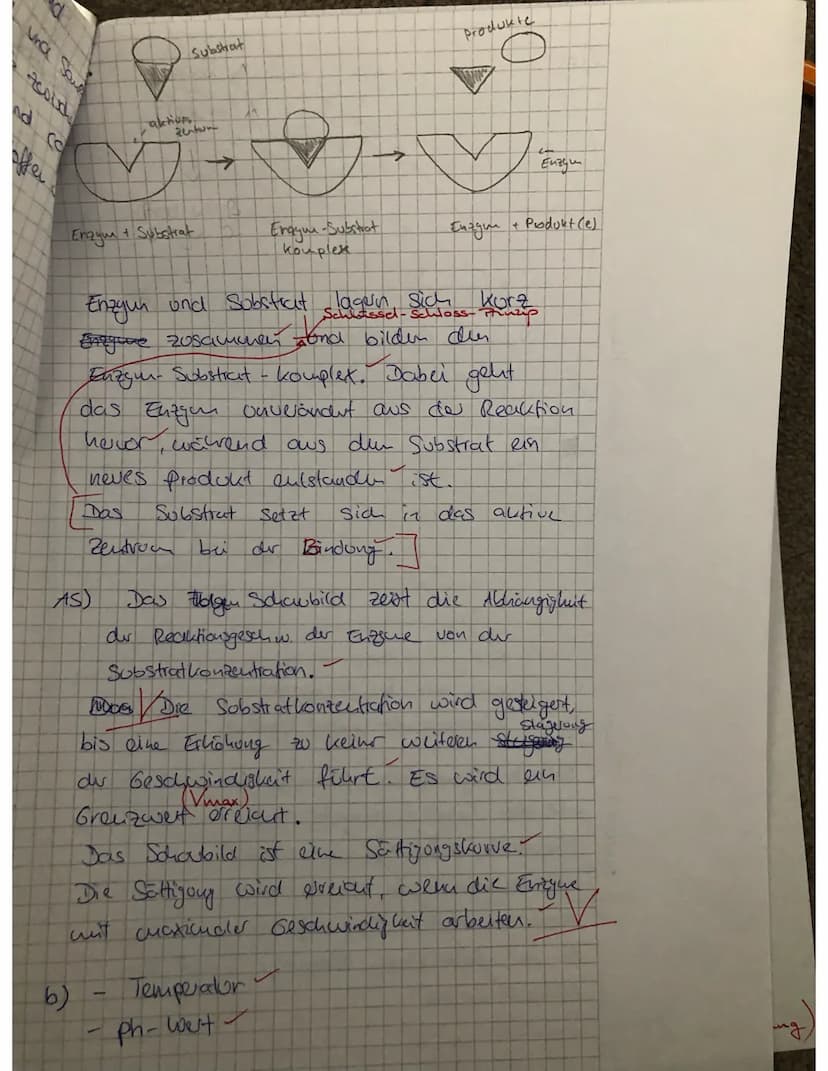 Substrat
Produkte
aktives
Zentrum
Enzym
Enzym + Substrat
Enzym-Substrat
komplex
Enzym + Produkt(e)
Enzym und Substrat lagern sich kurz
Schlüssel-Schloss-Prinzip
Enzyme zusammen und bilden den
Enzym-Substrat-komplex. Dabei geht
das Enzym unverändert aus der Reaktion
hervor, während aus dem Substrat ein
neues Produkt entstanden ist.
[Das Substrat setzt sich in das aktive
Zentrum bei der Bindung.]
A5) Das Schaubild zeigt die Abhängigkeit
der Reaktionsgeschw. der Enzyme von der
Substratkonzentration.
Das Die Substratkonzentration wird gesteigert,
Steigerung
bis eine Erhöhung zu keiner weiteren Steigerung
der Geschwindigkeit führt. Es wird ein
(Vmax)
Grenzwert erreicht.
Das Schaubild ist eine Sättigungskurve.
Die Sättigung wird erreicht, wenn die Enzyme
mit maximaler Geschwindigkeit arbeiten.
b) - Temperatur
- ph-Wert